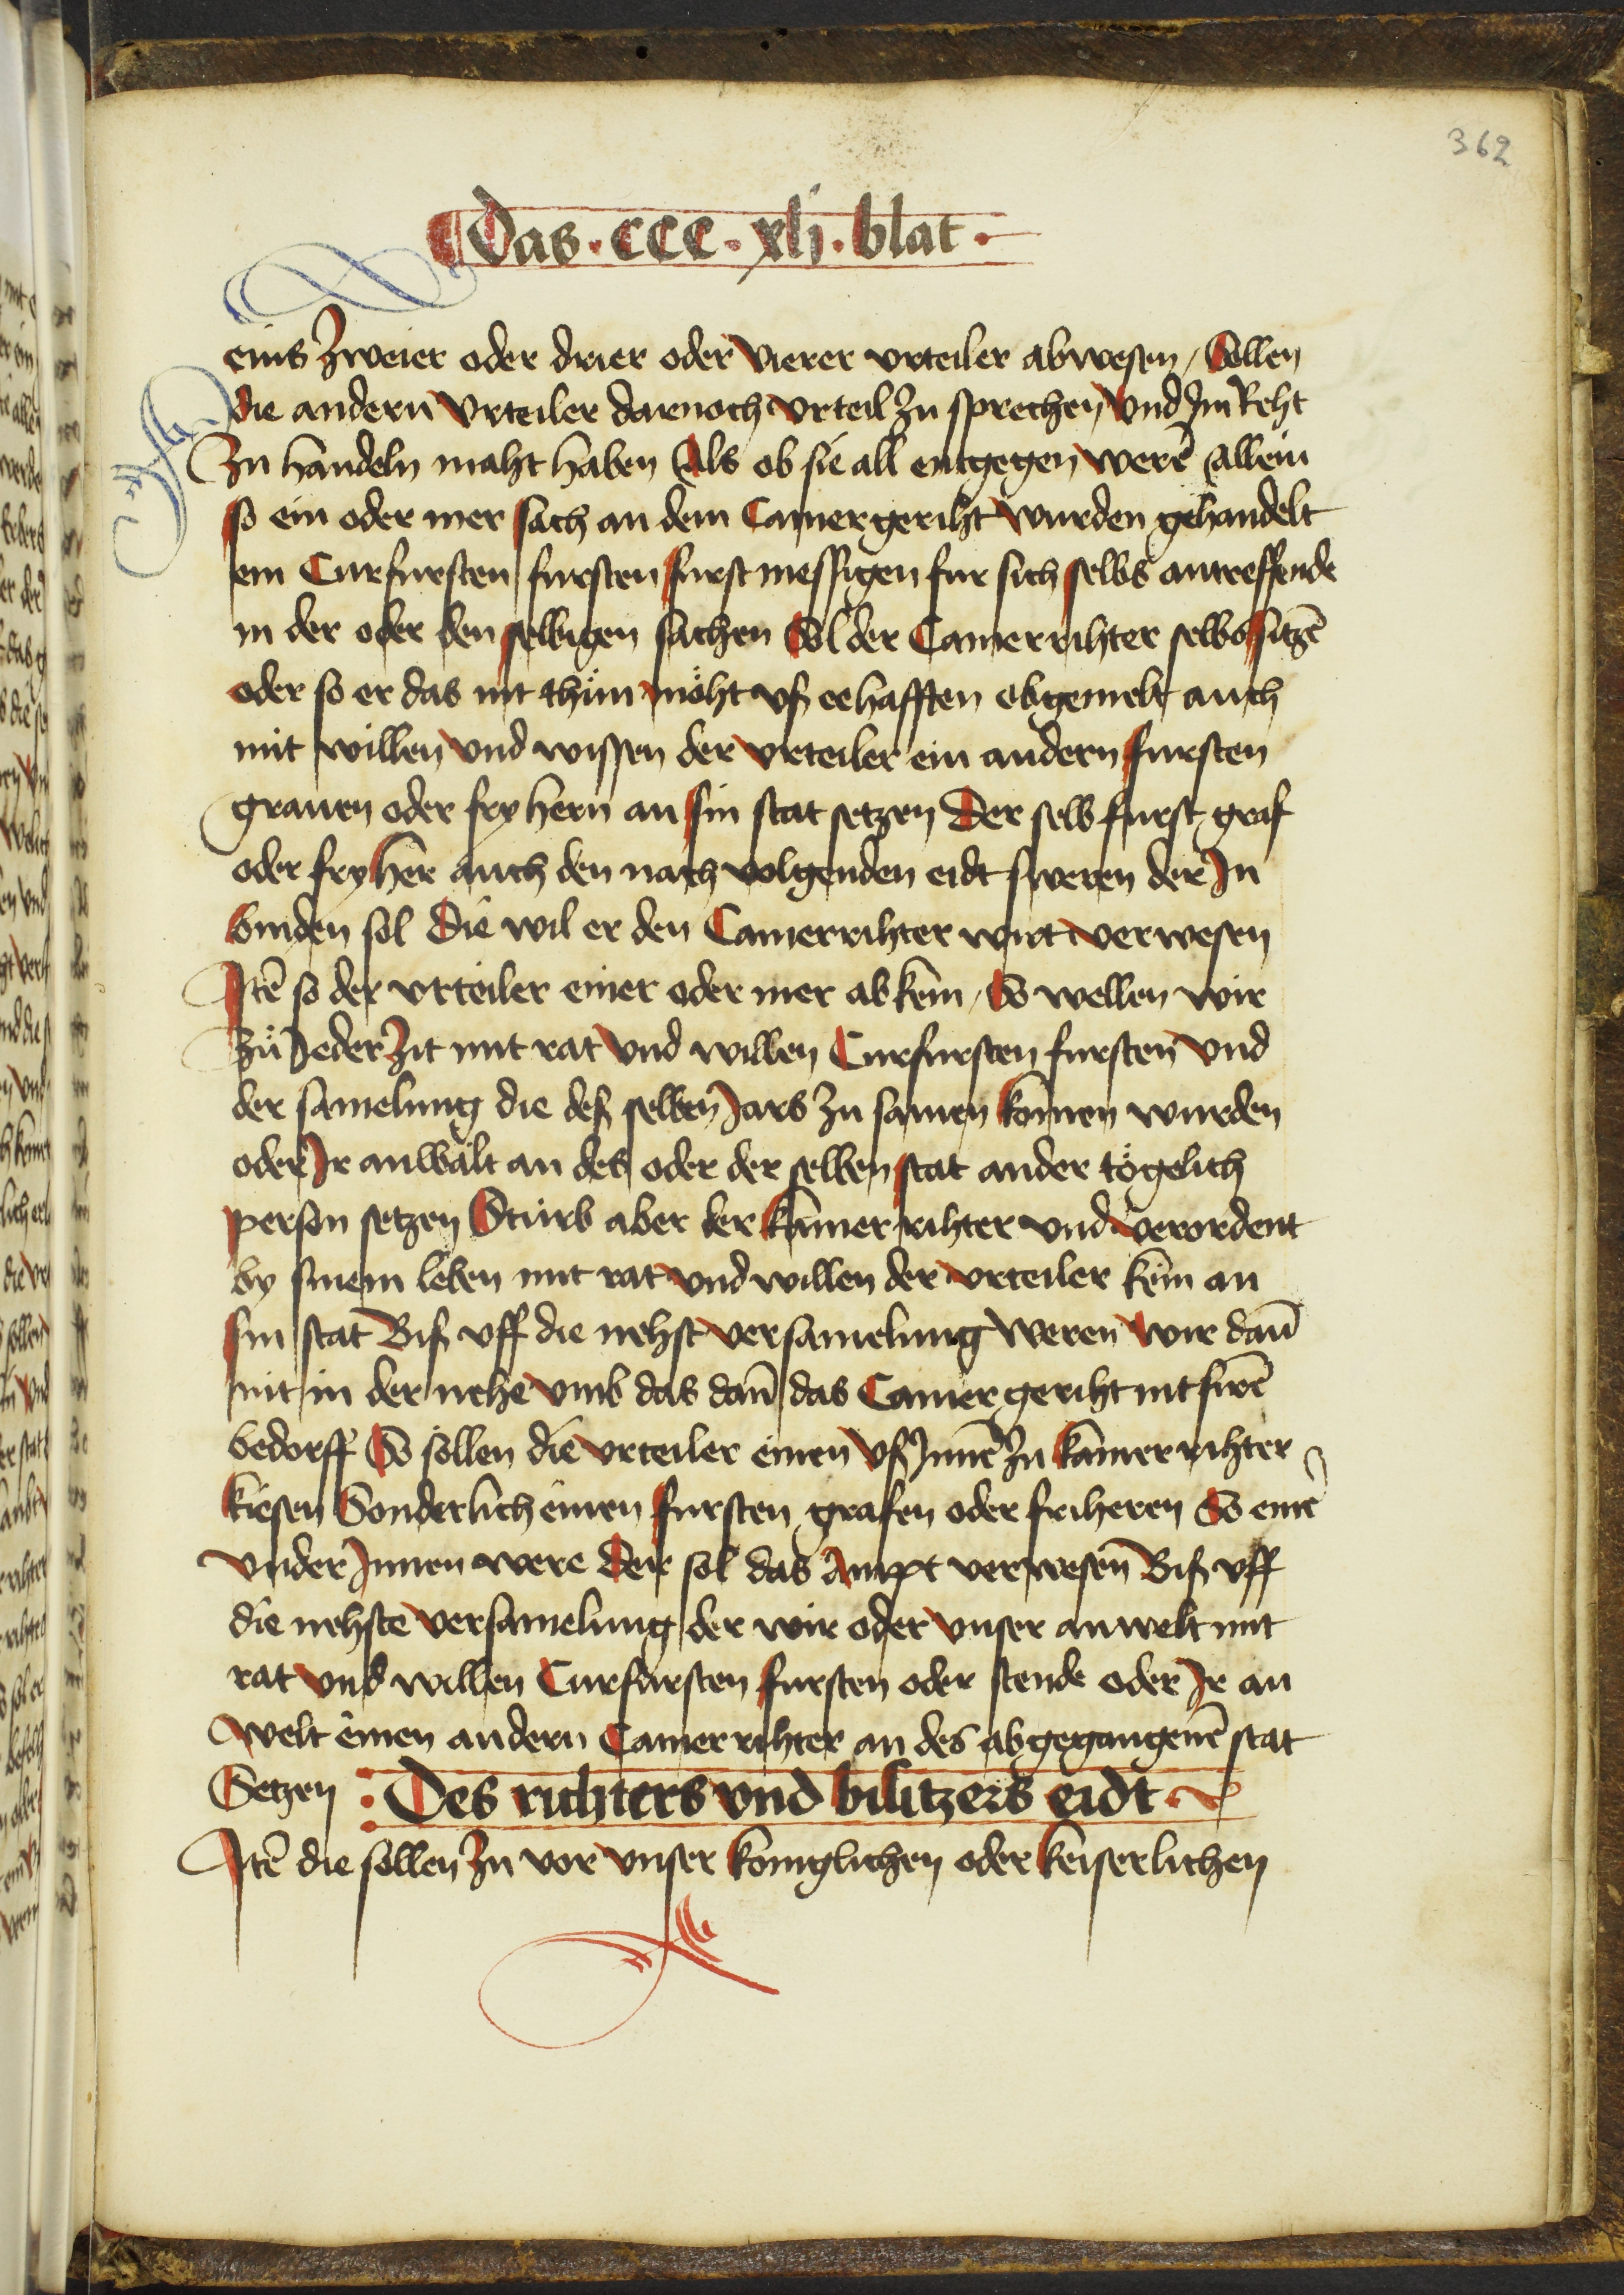 362
Das · ccc · xlj · blat ·
einß Zweier oder drier oder Vierer vrteiler abwesen / Sollen
die andern Vrteiler darnoch vrteil Zu sprechen Vnd Im Reht
Zu handeln maht haben Als ob sie all entgegen werē Allein
so ein oder mer sach an dem Camergeriht wurden gehandelt
ein Curfursten fursten furst messigen fur sich selbs antreffende
in der oder den selbigen sachen Sol der Camerrihter selbs sitzē
oder so er das nit thün möht vß eehafften obgemelt auch
mit willen vnd wissen der vrteiler ein andern fursten
grauen oder fryhern an sin stat setzen Der selb furst graf
oder fryher auch den nach volgenden eidt sweren der In
binden sol Die wil er den Camerrihter wirt verwesen
Itē so der vrteiler einer oder mer abkem / So wellen wir
Zü Jeder Zit mit rat vnd willen Curfursten fursten vnd
der samelung die deß selben Jars zu samen komen wurden
oder Ir anwält an des oder der selben stat ander tögelich
person setzen Sturb aber der Kamer rihter vnd verordent
by sinem leben mit rat vnd willen der vrteiler kein an
sin stat Biß vff die nehst versamelung weren wir dañ
nit in der nehe vmb das dañ das Camer geriht nit firē
bedorff So sollen die vrteiler einen vß Innē zu kamerrihter
kiesen Sonderlich einen fursten grafen oder friheren So einer
vnder Innen were Der sol das Ampt verwesen Biß vff
die nehste versamelung der wir oder vnser anwelt mit
rat vnd willen Curfursten fursten oder stende oder Ir an
welt einen andern Camerrihter an des abgegangenē stat
Setzen : Des richters vnd bisitzers eidt ·
Itē die sollen Zu vor vnser koniglichen oder keiserlichen